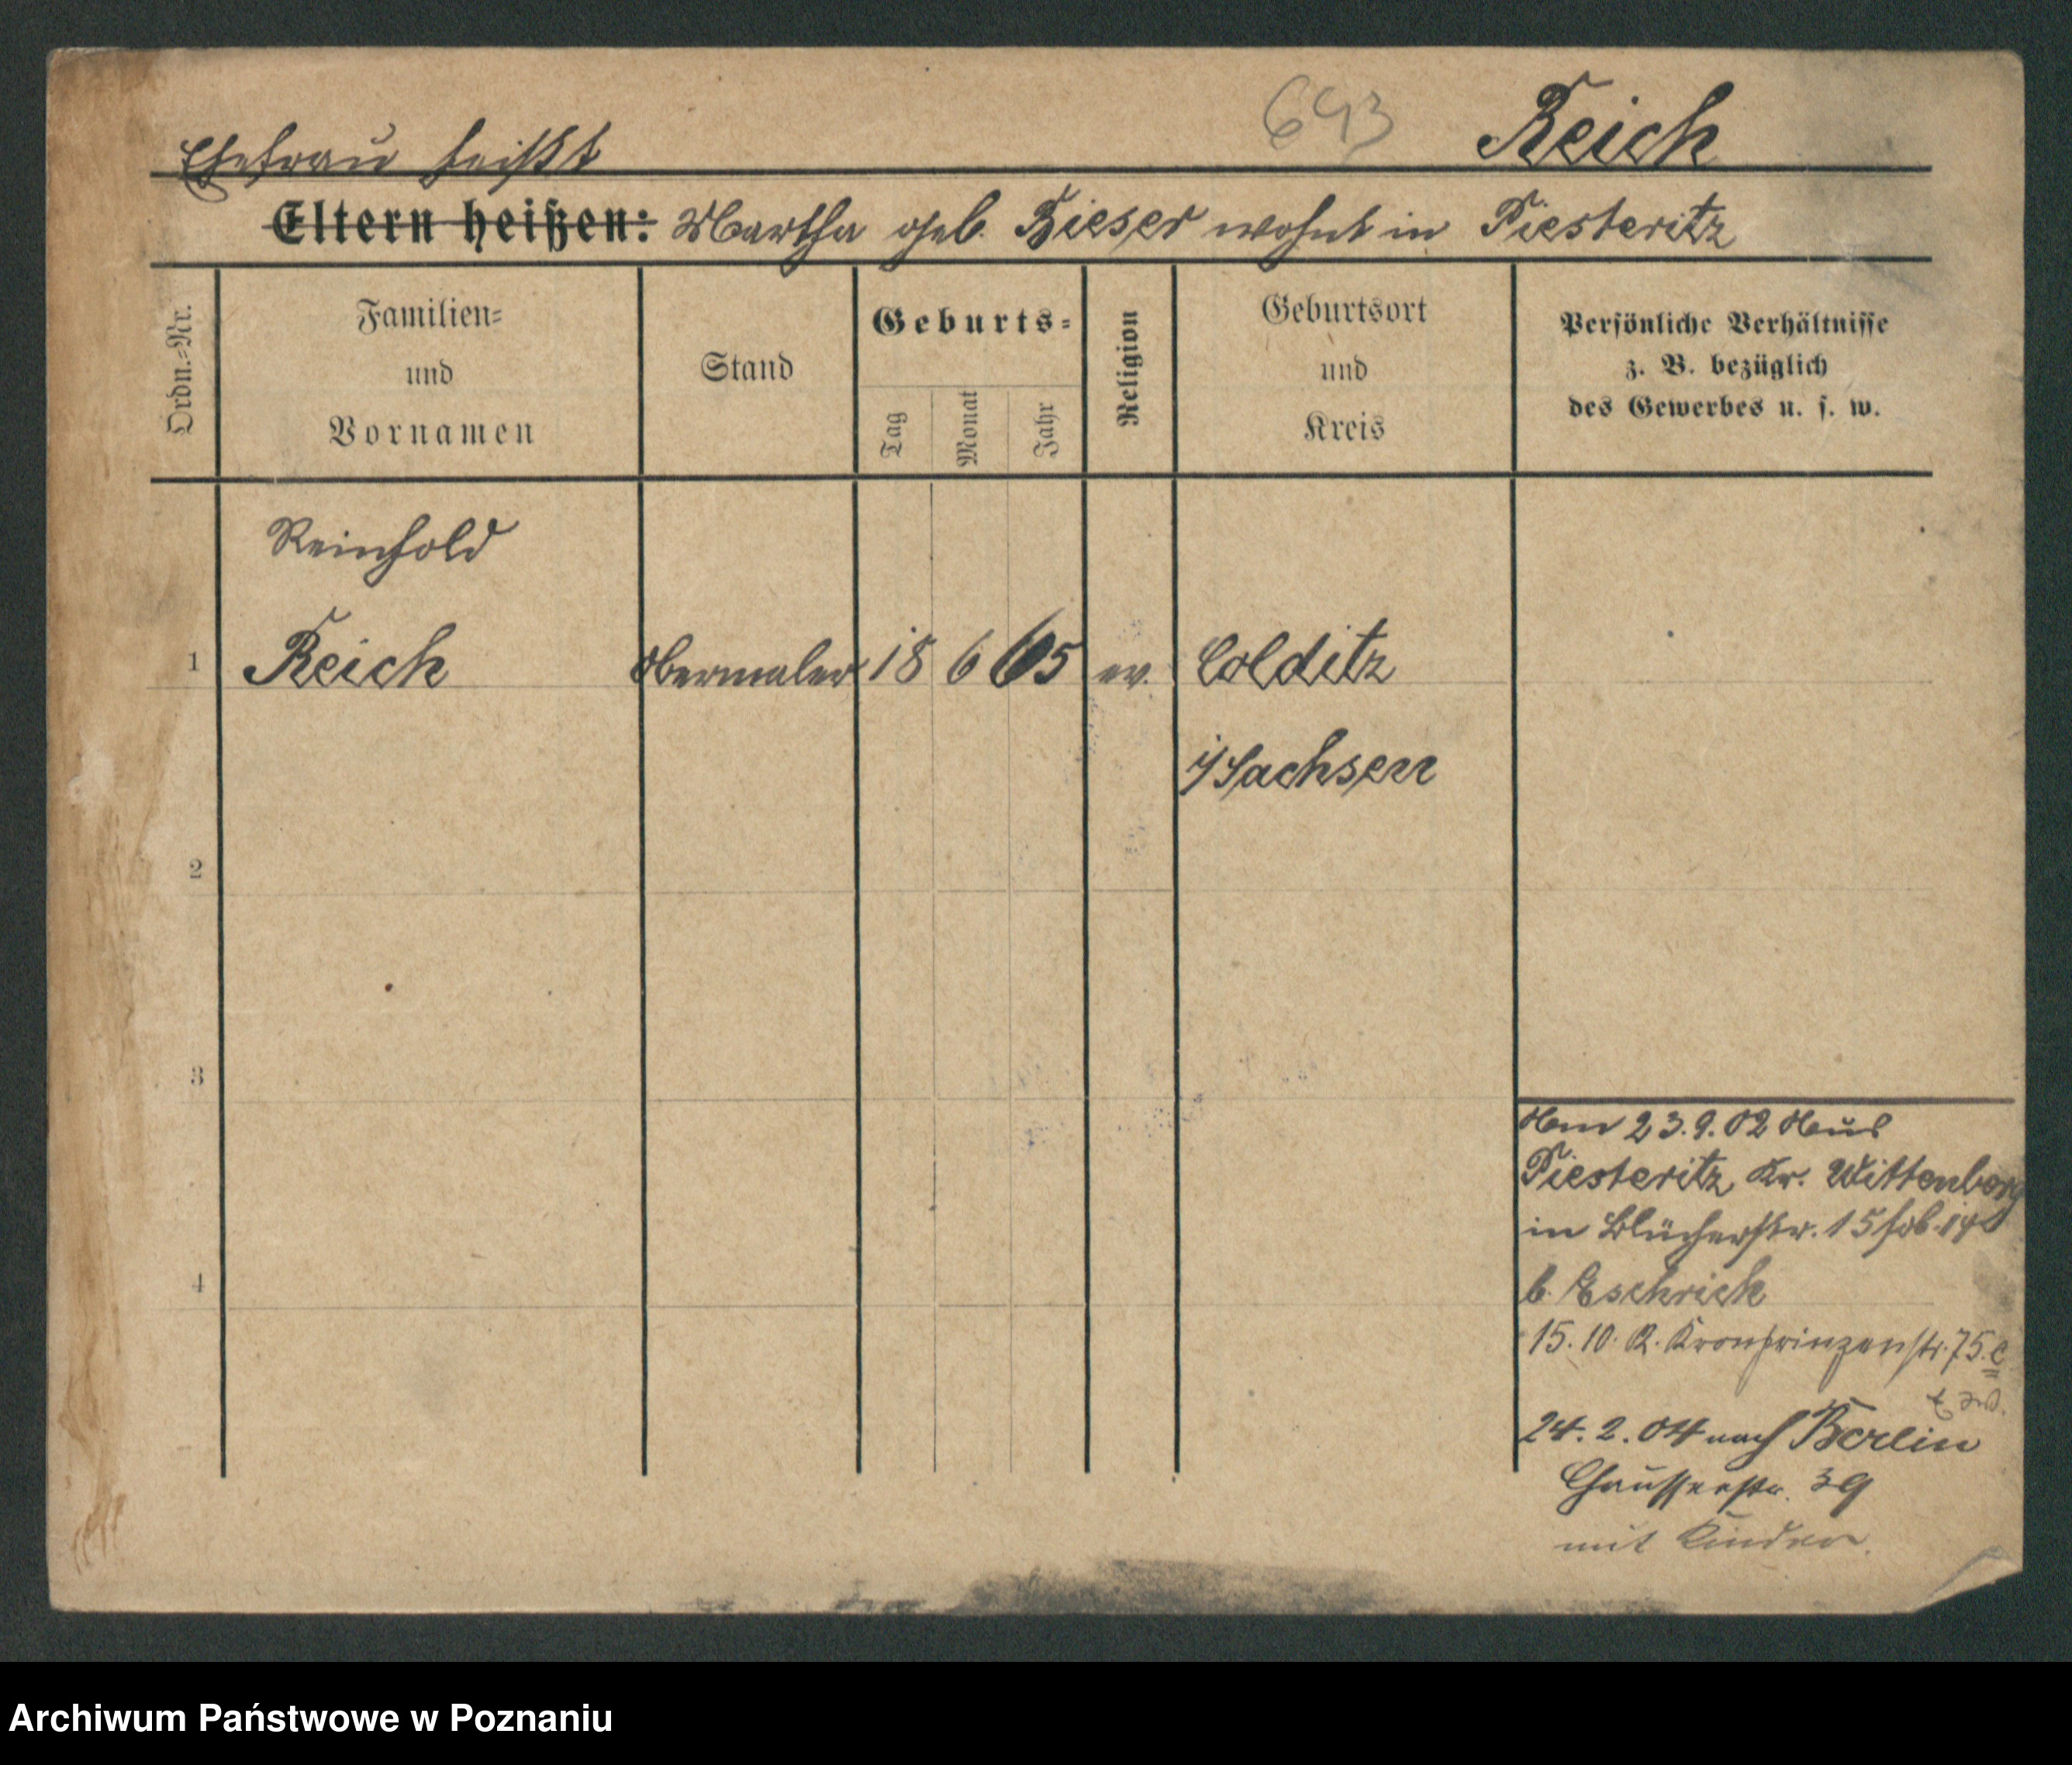 693 Reich
Ehefrau heißt
Eltern heißen: Martha geb. Zieser wohnt in Piesteritz
Ordn.=Nr.
Familien=
und
Vornamen
Stand
Geburts=
Tag
Monat
Jahr
Religion
Geburtsort
und
Kreis
Persönliche Verhältnisse
z. B. bezüglich
des Gewerbes u. s. w.
Reinhold
1 Reich Obermaler 18 6 65 ev. Colditz
i/Sachsen
2
3
4
23.9.02
Piesteritz Kr. Wittenberg
in Blücherstr. 15
b. Eschrich
15. 10. R. Kronprinzenstr. 75.
24. 2. 04 nach Berlin
Chausseestr. 39
mit Kinder.
Archiwum Państwowe w Poznaniu